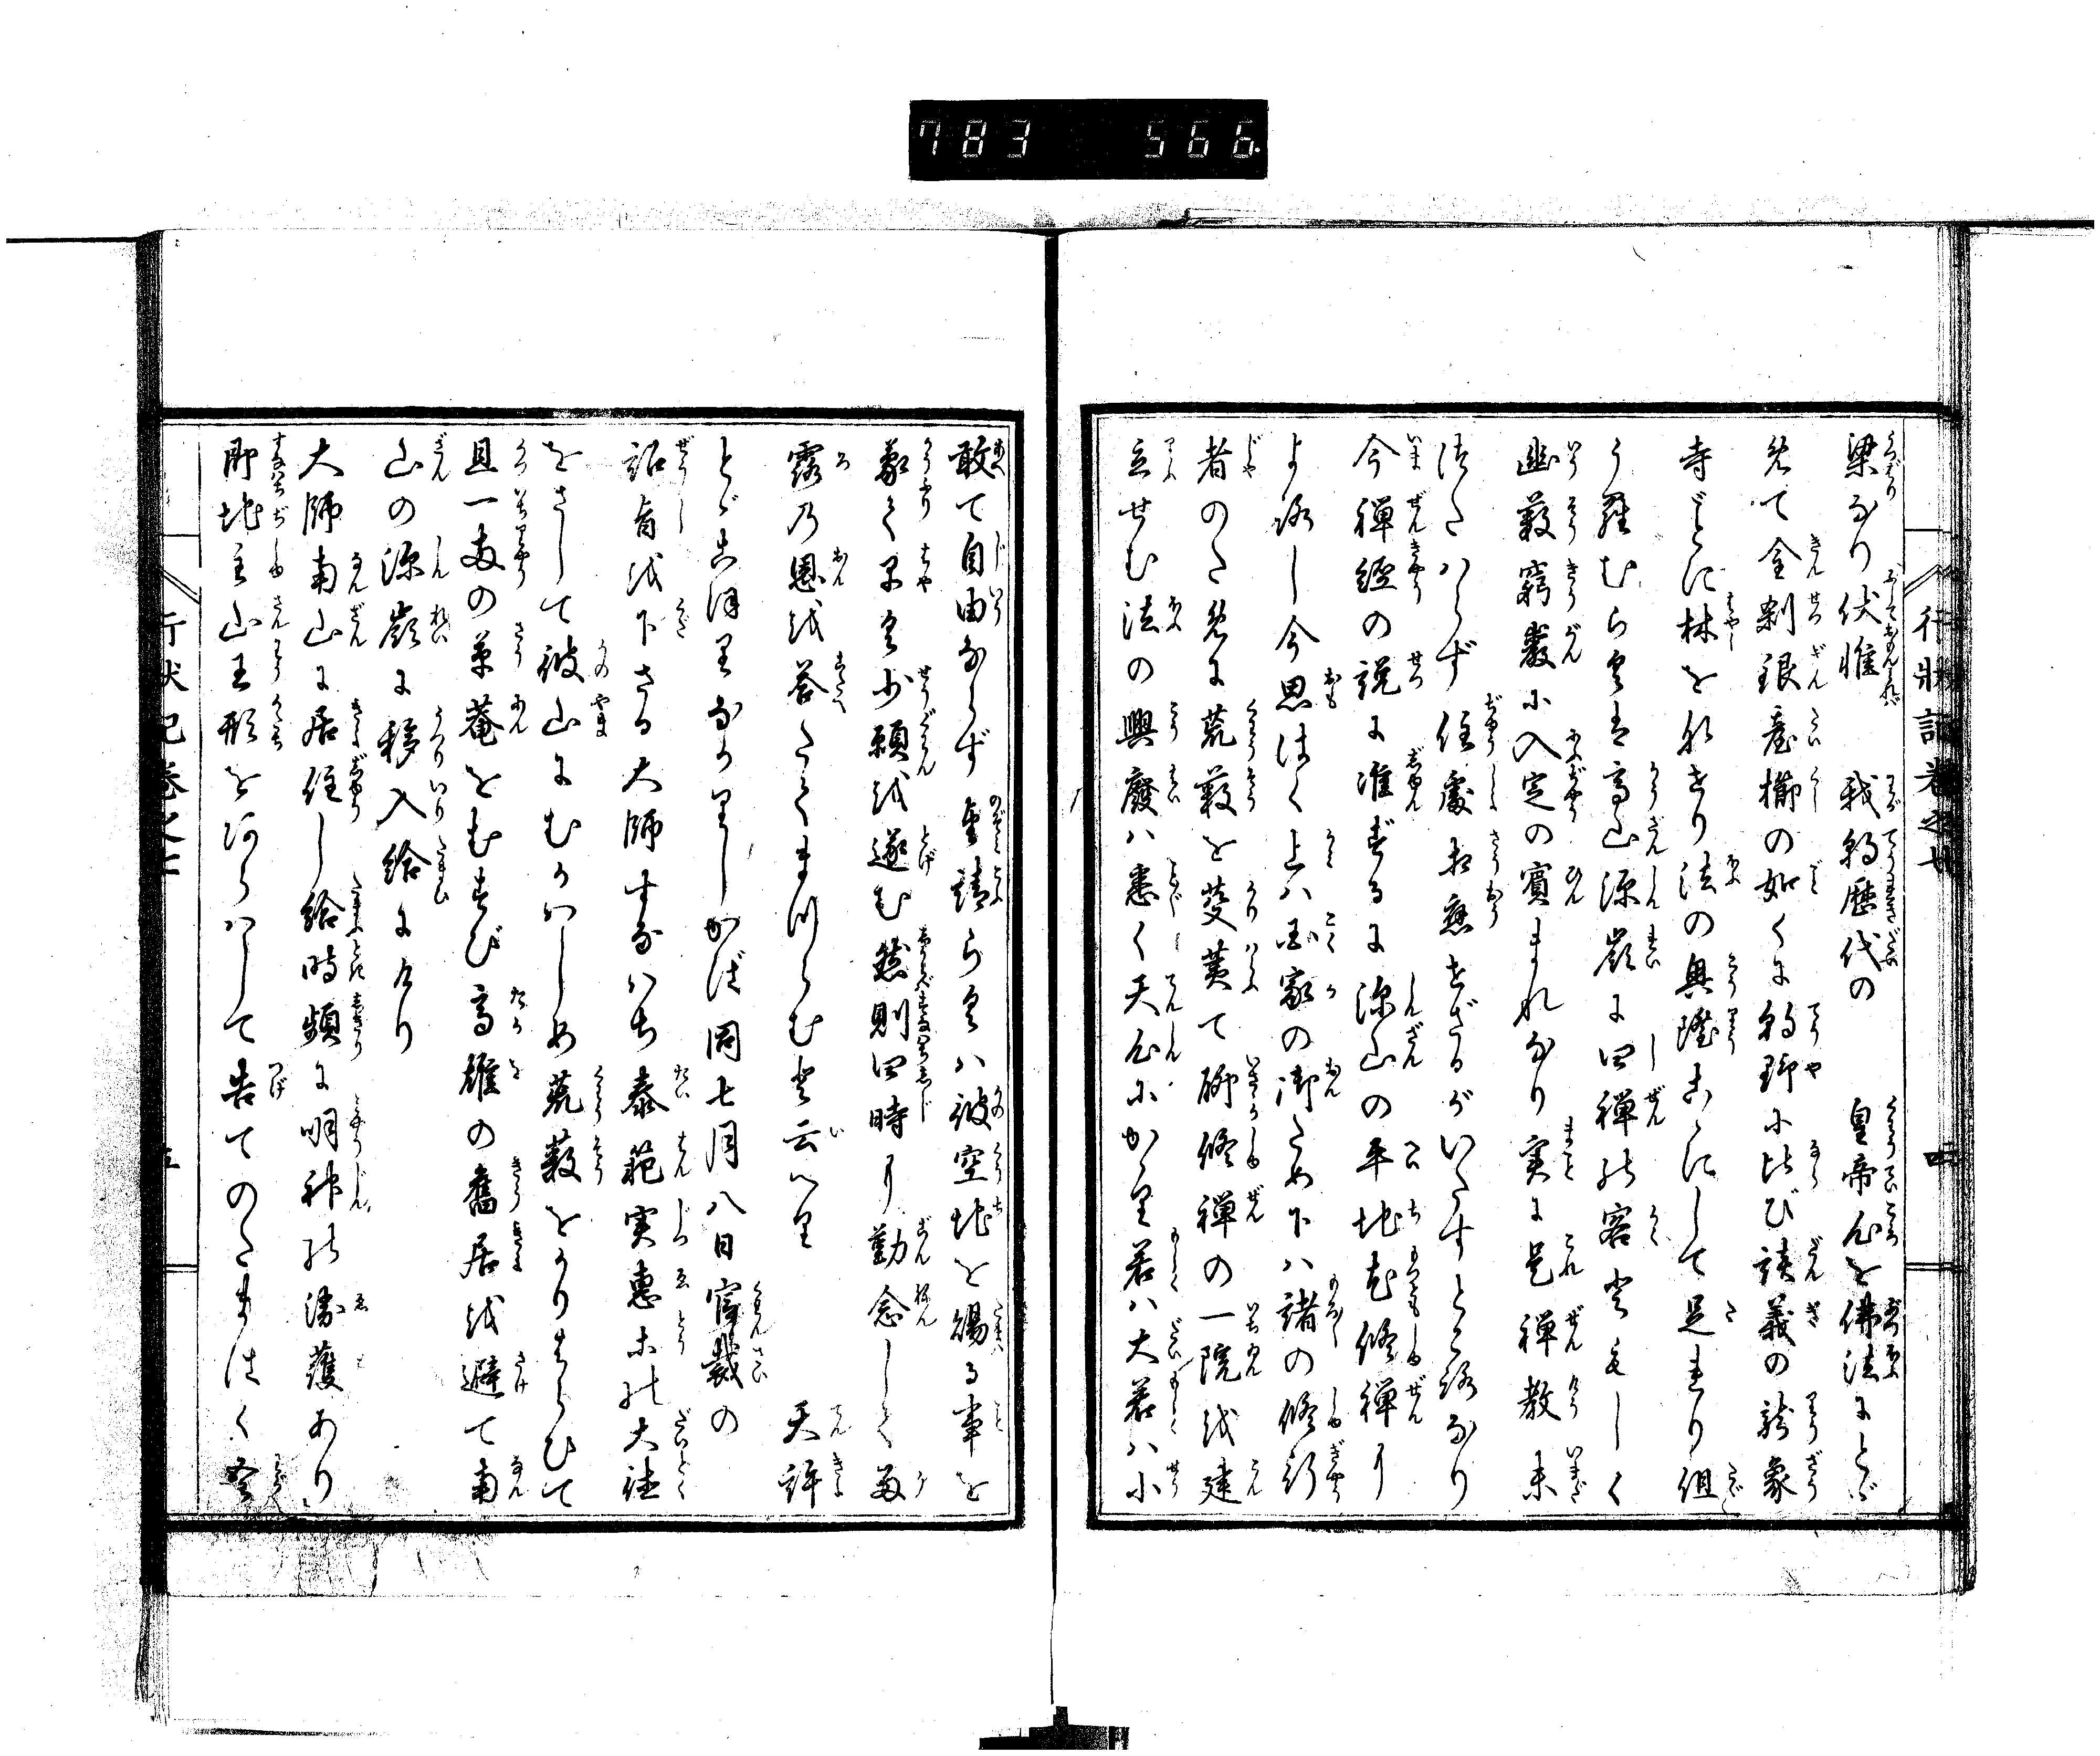 783 566
行状記巻之廿 四
梁なり伏惟我朝歴代の皇帝心を佛法にとゞ
めて金刹銀臺櫛の如くに朝野に比び談義の龍象
寺ごとに林をなせり法の興隆こゝにして足をり但
うらむらくは高山深嶺に四禅の客とぼしく
幽藪窮巌に入定の賓まれなり実に是禅教未
つたはらず住處相應せざるがいたすところなり
今禅經の説に准ずるに深山の平地尤修禅に
よろし今思はく上ハ国家の御ため下ハ諸の修行
者のために荒藪を芟夷て聊修禅の一院を建
立せむ法の興廢ハ悉く天心にかゝる若ハ大若ハ小
敢て自由ならず望請らくハ彼空地を賜る事を
蒙て早く少願を遂む然則四時に勤念して雨
露の恩を答たてまつらむと云へり 天許
とゞこほりなかりしかば同七月八日官裁の
詔旨を下さる大師すなハち泰範実恵等の大徳
をさして彼山にむかハしめ荒藪をかりはらひて
且一両の草菴をむすび高雄の舊居を避て南
山の深嶺に移入給にけり
大師南山に居住し給時頻に明神の衛護あり
即地主山王形をあらハして告てのたまはく
行状記巻之七 五